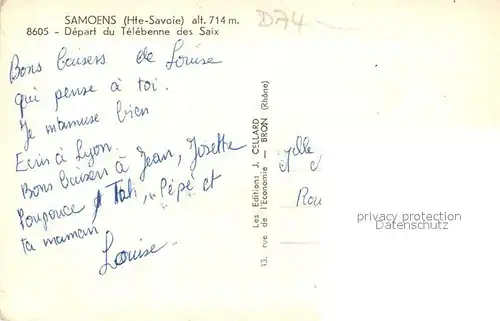 SAMOENS (Hte-Savoie) alt. 714 m.
8605 - Départ du Télébenne des Saix
D74
Bons baisers de Louise
qui pense à toi.
Je m'amuse bien
Ecris à Lyon.
Bons baisers à Jean, Josette
Poupouce Tati, "Pépé et
ta maman
Louise.
Les Editions J. CELLARD
13, rue de l'Economie — BRON (Rhône)
Rou
privacy protection
Datenschutz